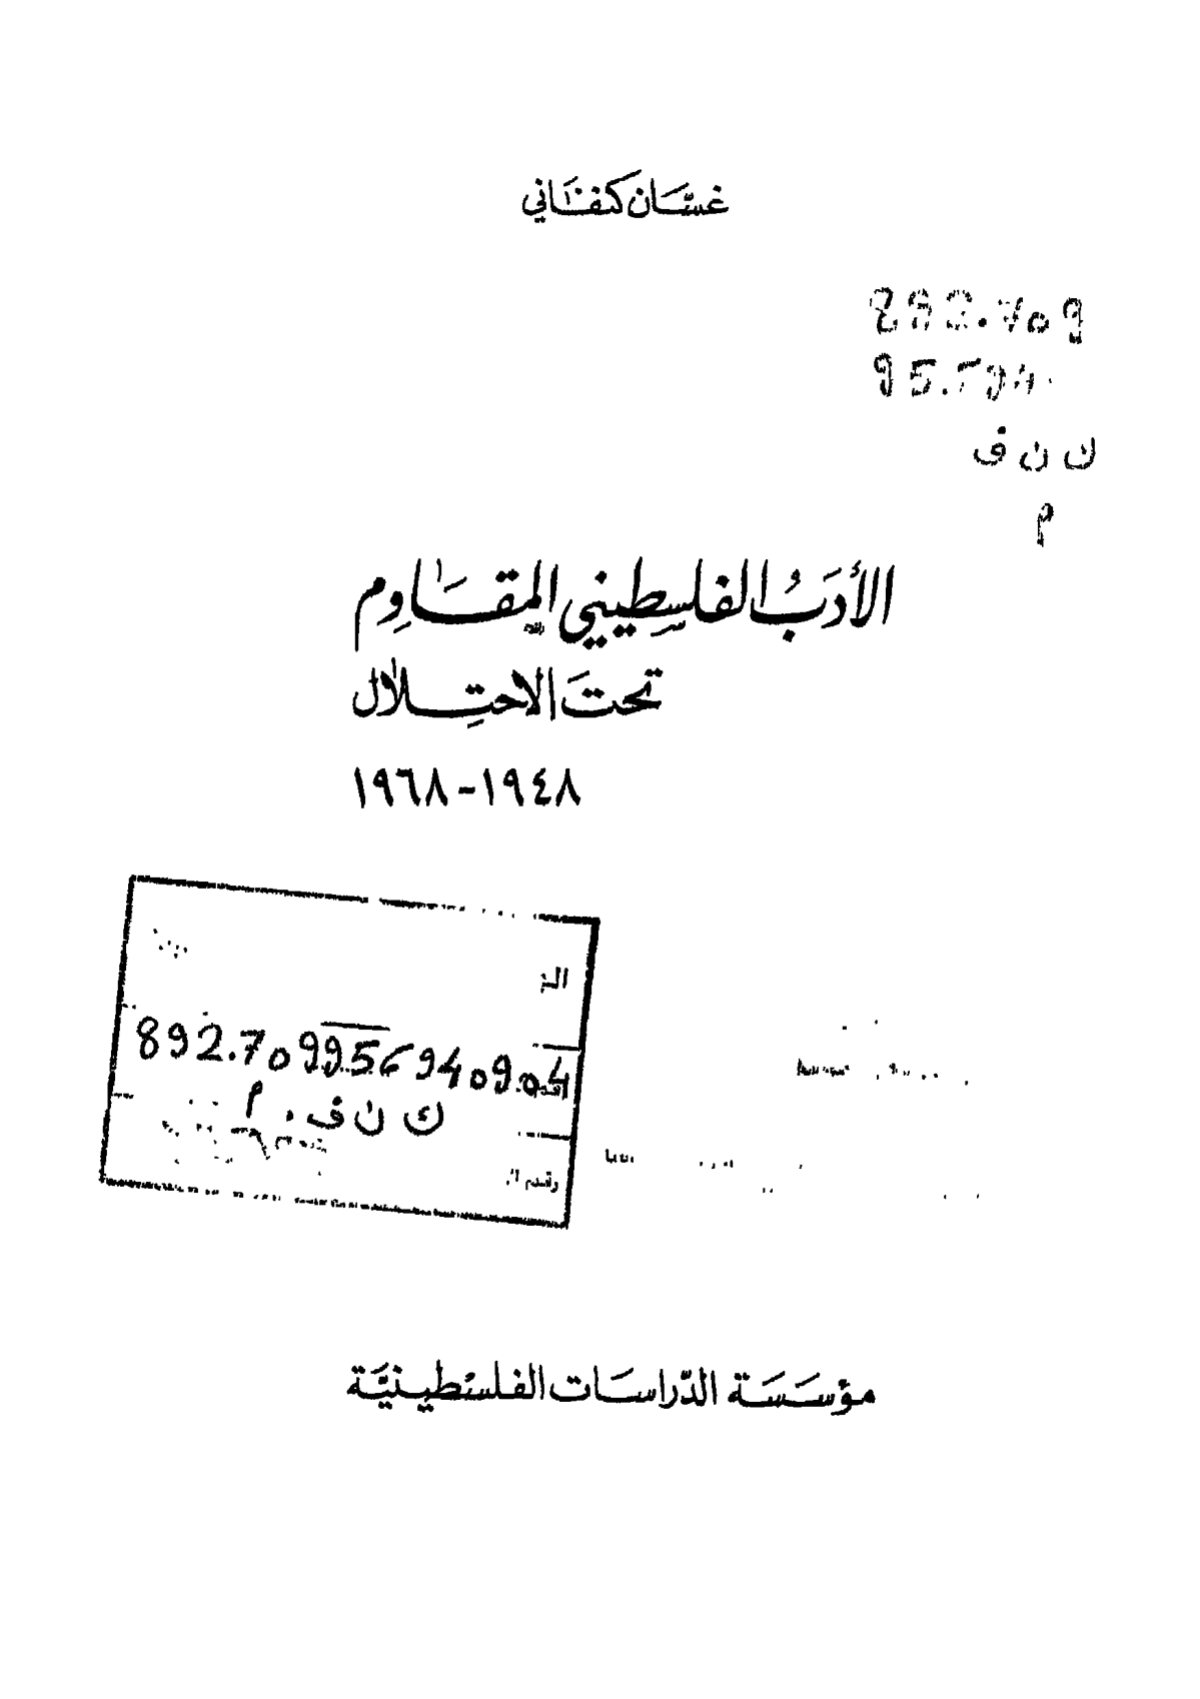 غسَّان كنفاني
ك ن ف
م
الأدَبُ الفلسطيني المقَاوِم
تحتَ الاحتِلال
١٩٤٨-١٩٦٨
892.70995694090904
ك ن ف . م
مؤسَسَة الدّراسَات الفلسطينيَّة